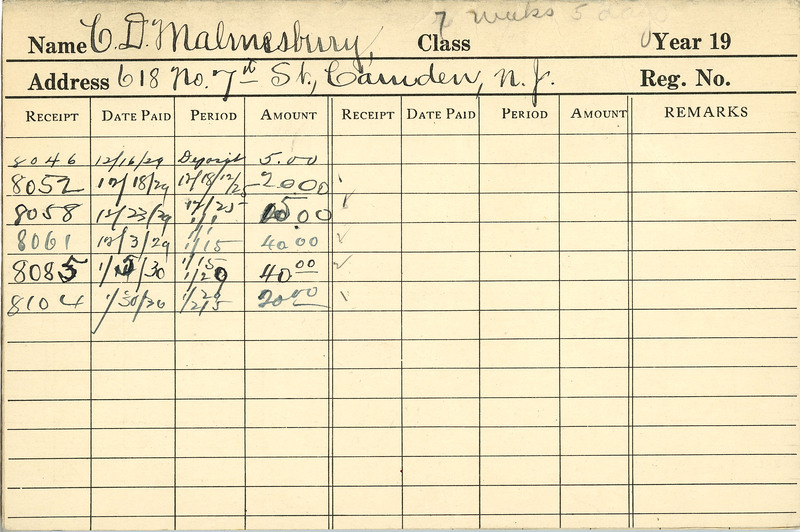 7 weeks 5 days
Name C. D. Malmesbury, Class Year 19
Address 618 No. 7th St., Camden, N. J. Reg. No.
RECEIPT DATE PAID PERIOD AMOUNT RECEIPT DATE PAID PERIOD AMOUNT REMARKS
8046 12/16/29 Deposit 5.00
8052 12/18/29 12/18 12/25 20.00
8058 12/23/29 12/25 1/1 00
8061 12/3/29 1/1 1/15 40.00
8085 1/30 1/15 40 00
8104 1/30/30 20 00